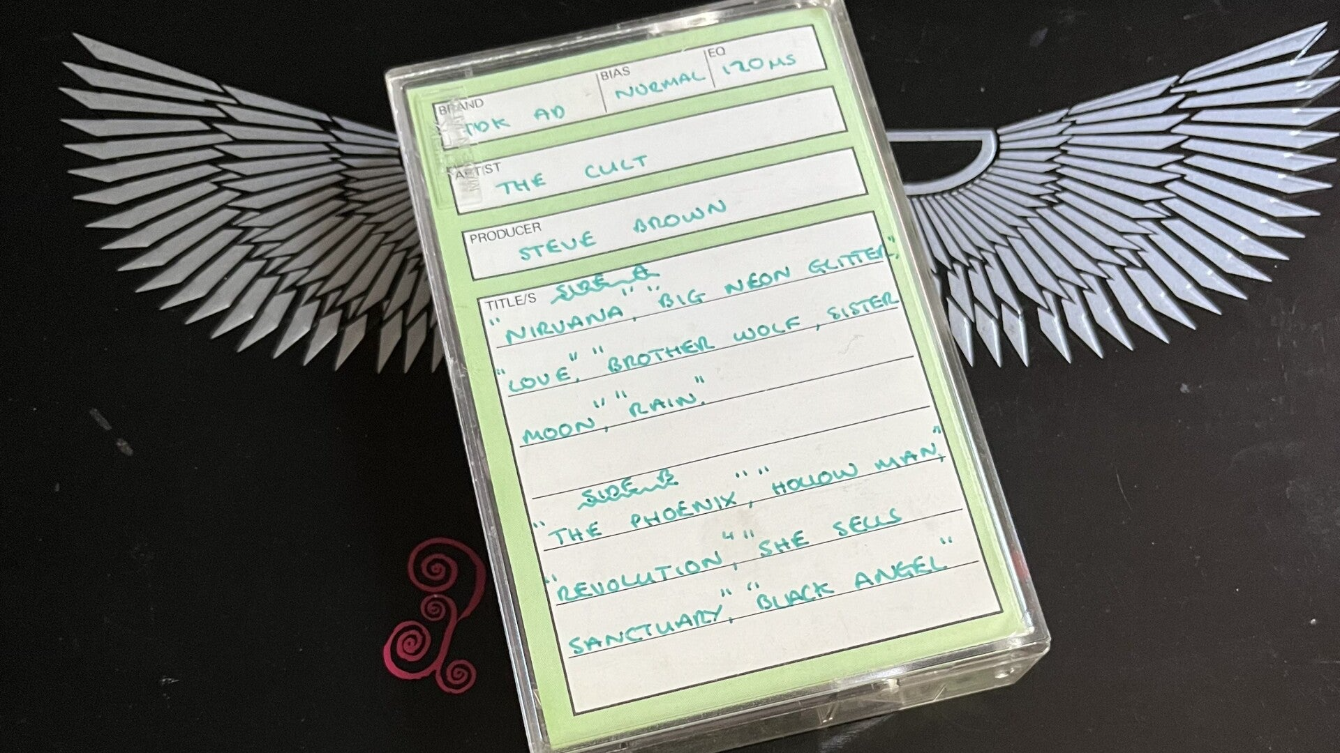 BRAND TDK AD BIAS NORMAL EQ 120 MS
ARTIST THE CULT
PRODUCER STEVE BROWN
TITLE/S SIDE A
"NIRVANA", "BIG NEON GLITTER,"
"LOVE," "BROTHER WOLF, SISTER
MOON", "RAIN."
SIDE B
"THE PHOENIX", "HOLLOW MAN,"
"REVOLUTION", "SHE SELLS
SANCTUARY", "BLACK ANGEL"